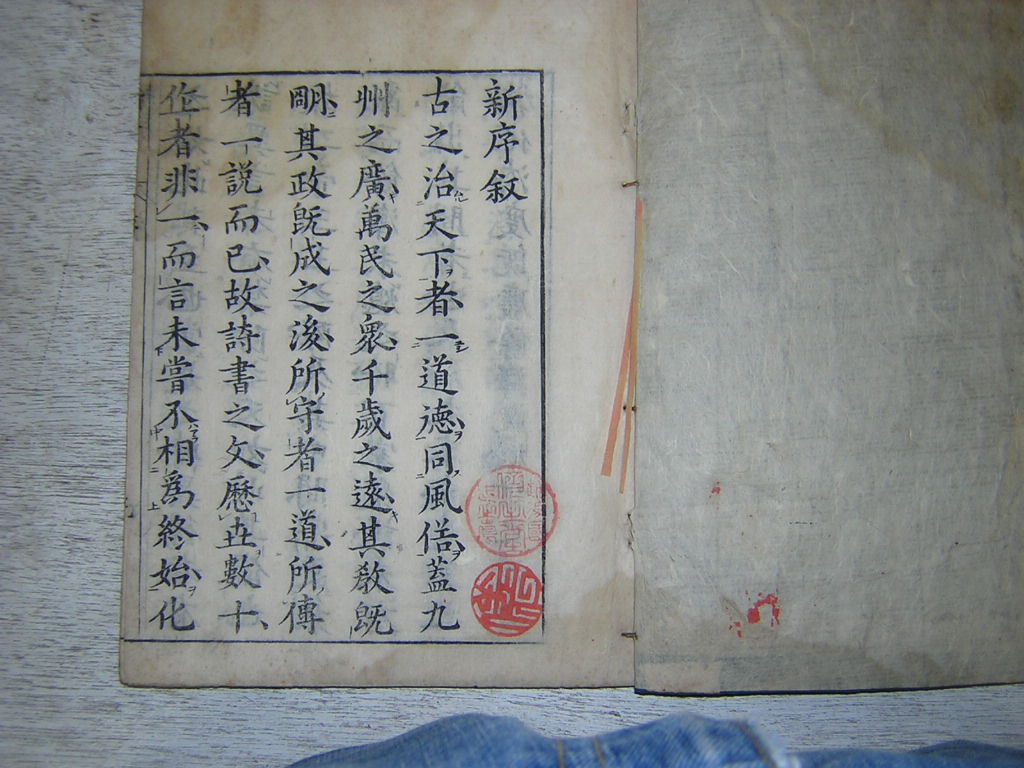 新序叙
古之治天下者一道徳同風俗蓋九
州之廣萬民之衆千歲之遠其教既
明其政既成之後所守者一道所傳
者一説而已故詩書之文歷世數十
作者非一而言未嘗不相爲終始化